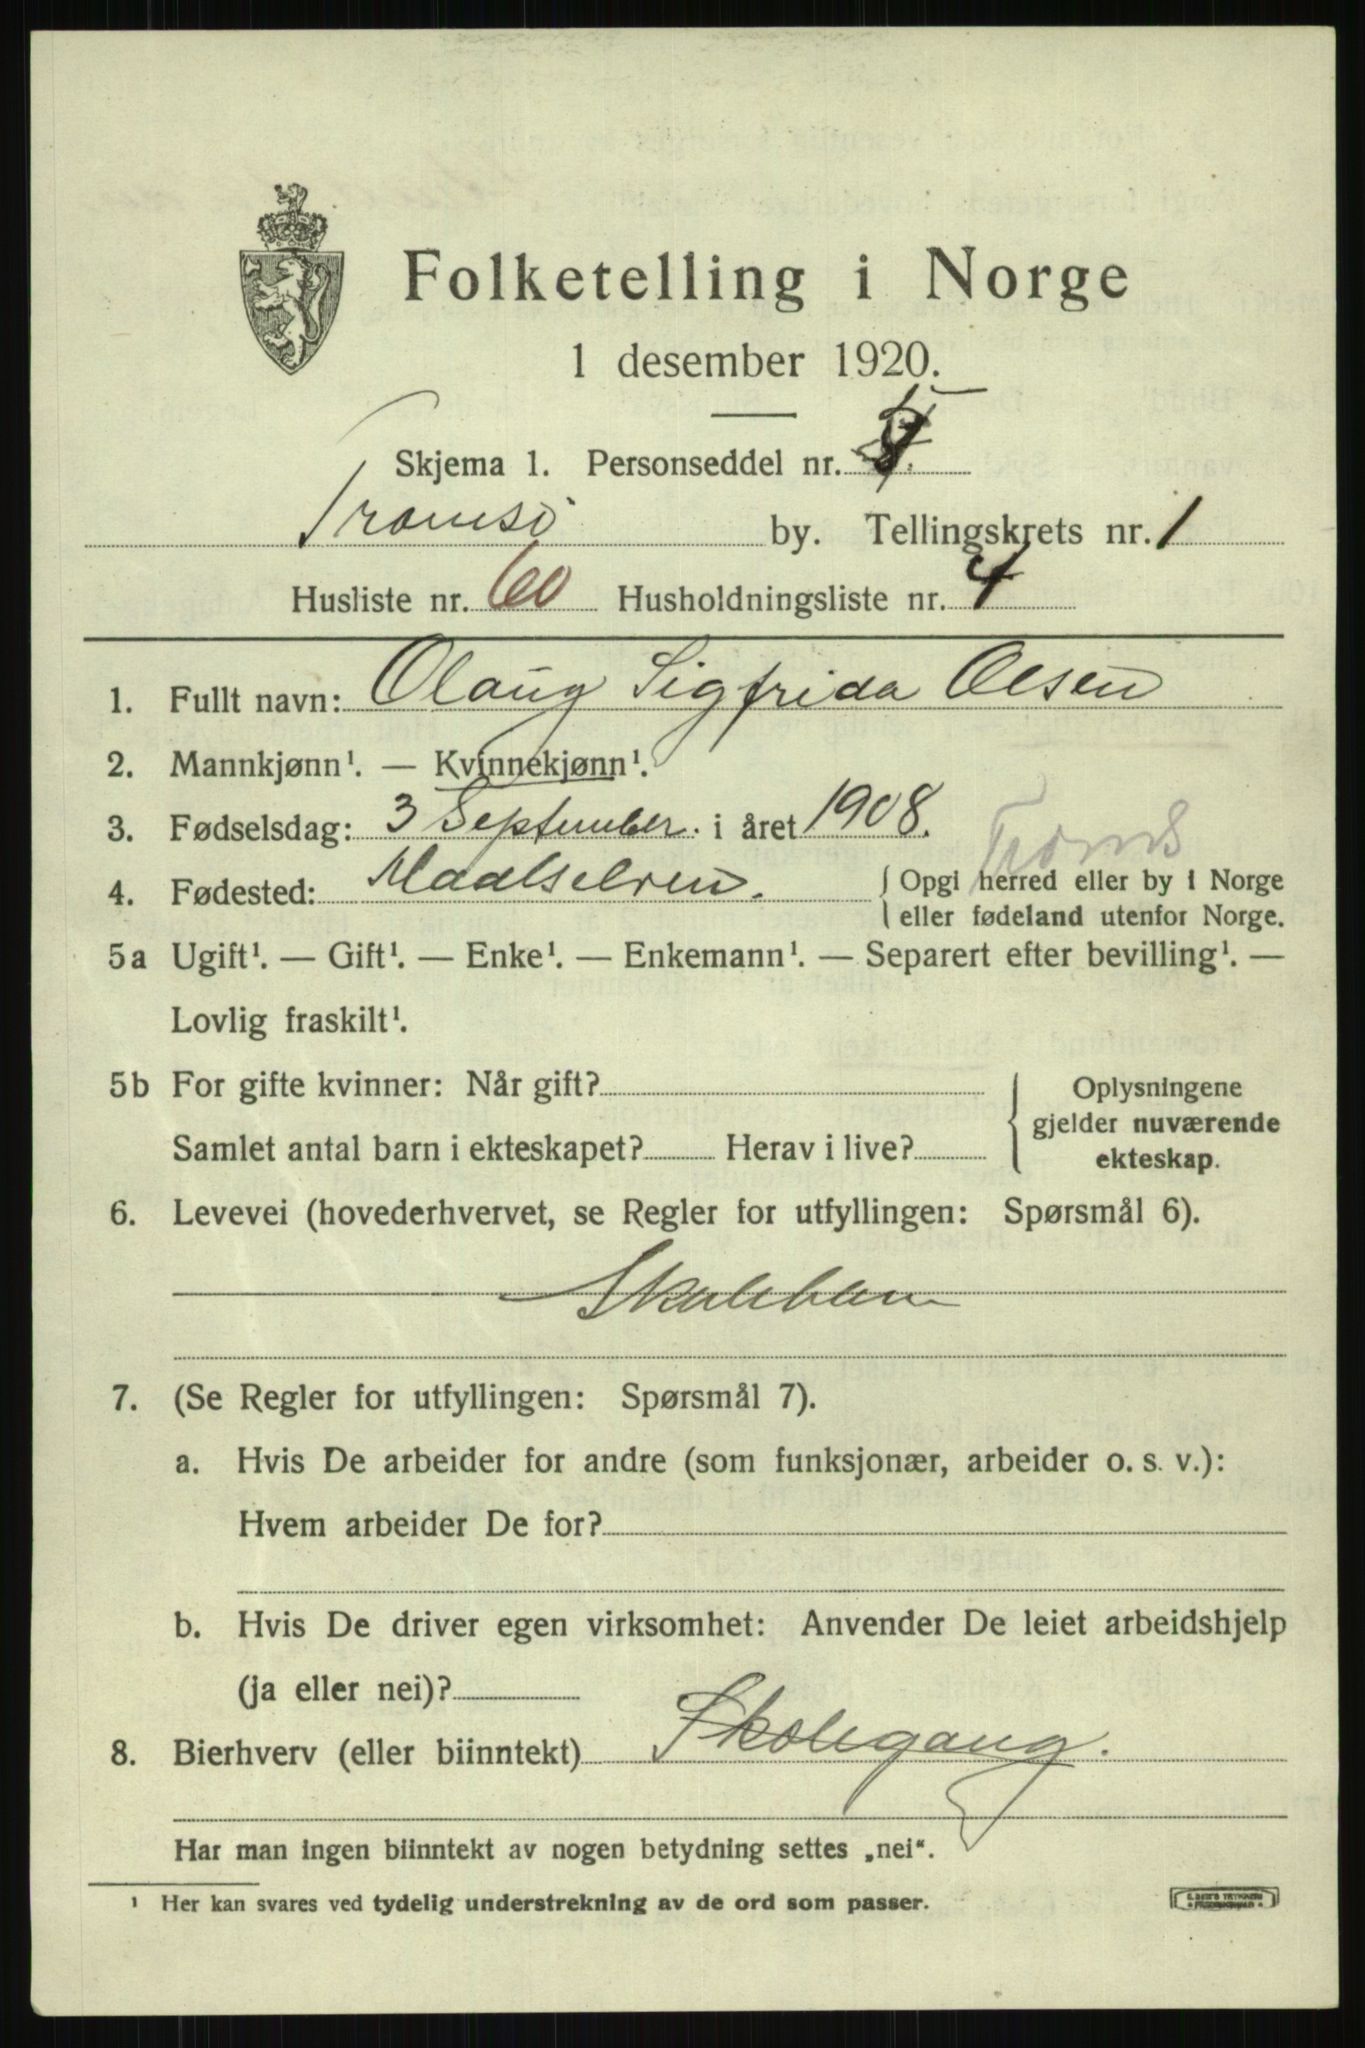 Folketelling i Norge
1 desember 1920.
Skjema 1. Personseddel nr.
Tromsö by. Tellingskrets nr. 1
Husliste nr. 60 Husholdningsliste nr. 4
1. Fullt navn: Olaug Sigfrida Olsen
2. Mannkjønn¹. — Kvinnekjønn¹.
3. Fødselsdag: 3 September. i året 1908.
Troms
4. Fødested: Maalselven. Opgi herred eller by i Norge
eller fødeland utenfor Norge.
5a Ugift¹. — Gift¹. — Enke¹. — Enkemann¹. — Separert efter bevilling¹. —
Lovlig fraskilt¹.
5b For gifte kvinner: Når gift?
Samlet antal barn i ekteskapet? Herav i live?
Oplysningene
gjelder nuværende
ekteskap.
6. Levevei (hovederhvervet, se Regler for utfyllingen: Spørsmål 6).
Skolebarn
7. (Se Regler for utfyllingen: Spørsmål 7).
a. Hvis De arbeider for andre (som funksjonær, arbeider o. s. v.):
Hvem arbeider De for?
b. Hvis De driver egen virksomhet: Anvender De leiet arbeidshjelp
(ja eller nei)?
8. Bierhverv (eller biinntekt) Skolegang.
Har man ingen biinntekt av nogen betydning settes „nei“.
¹ Her kan svares ved tydelig understrekning av de ord som passer.